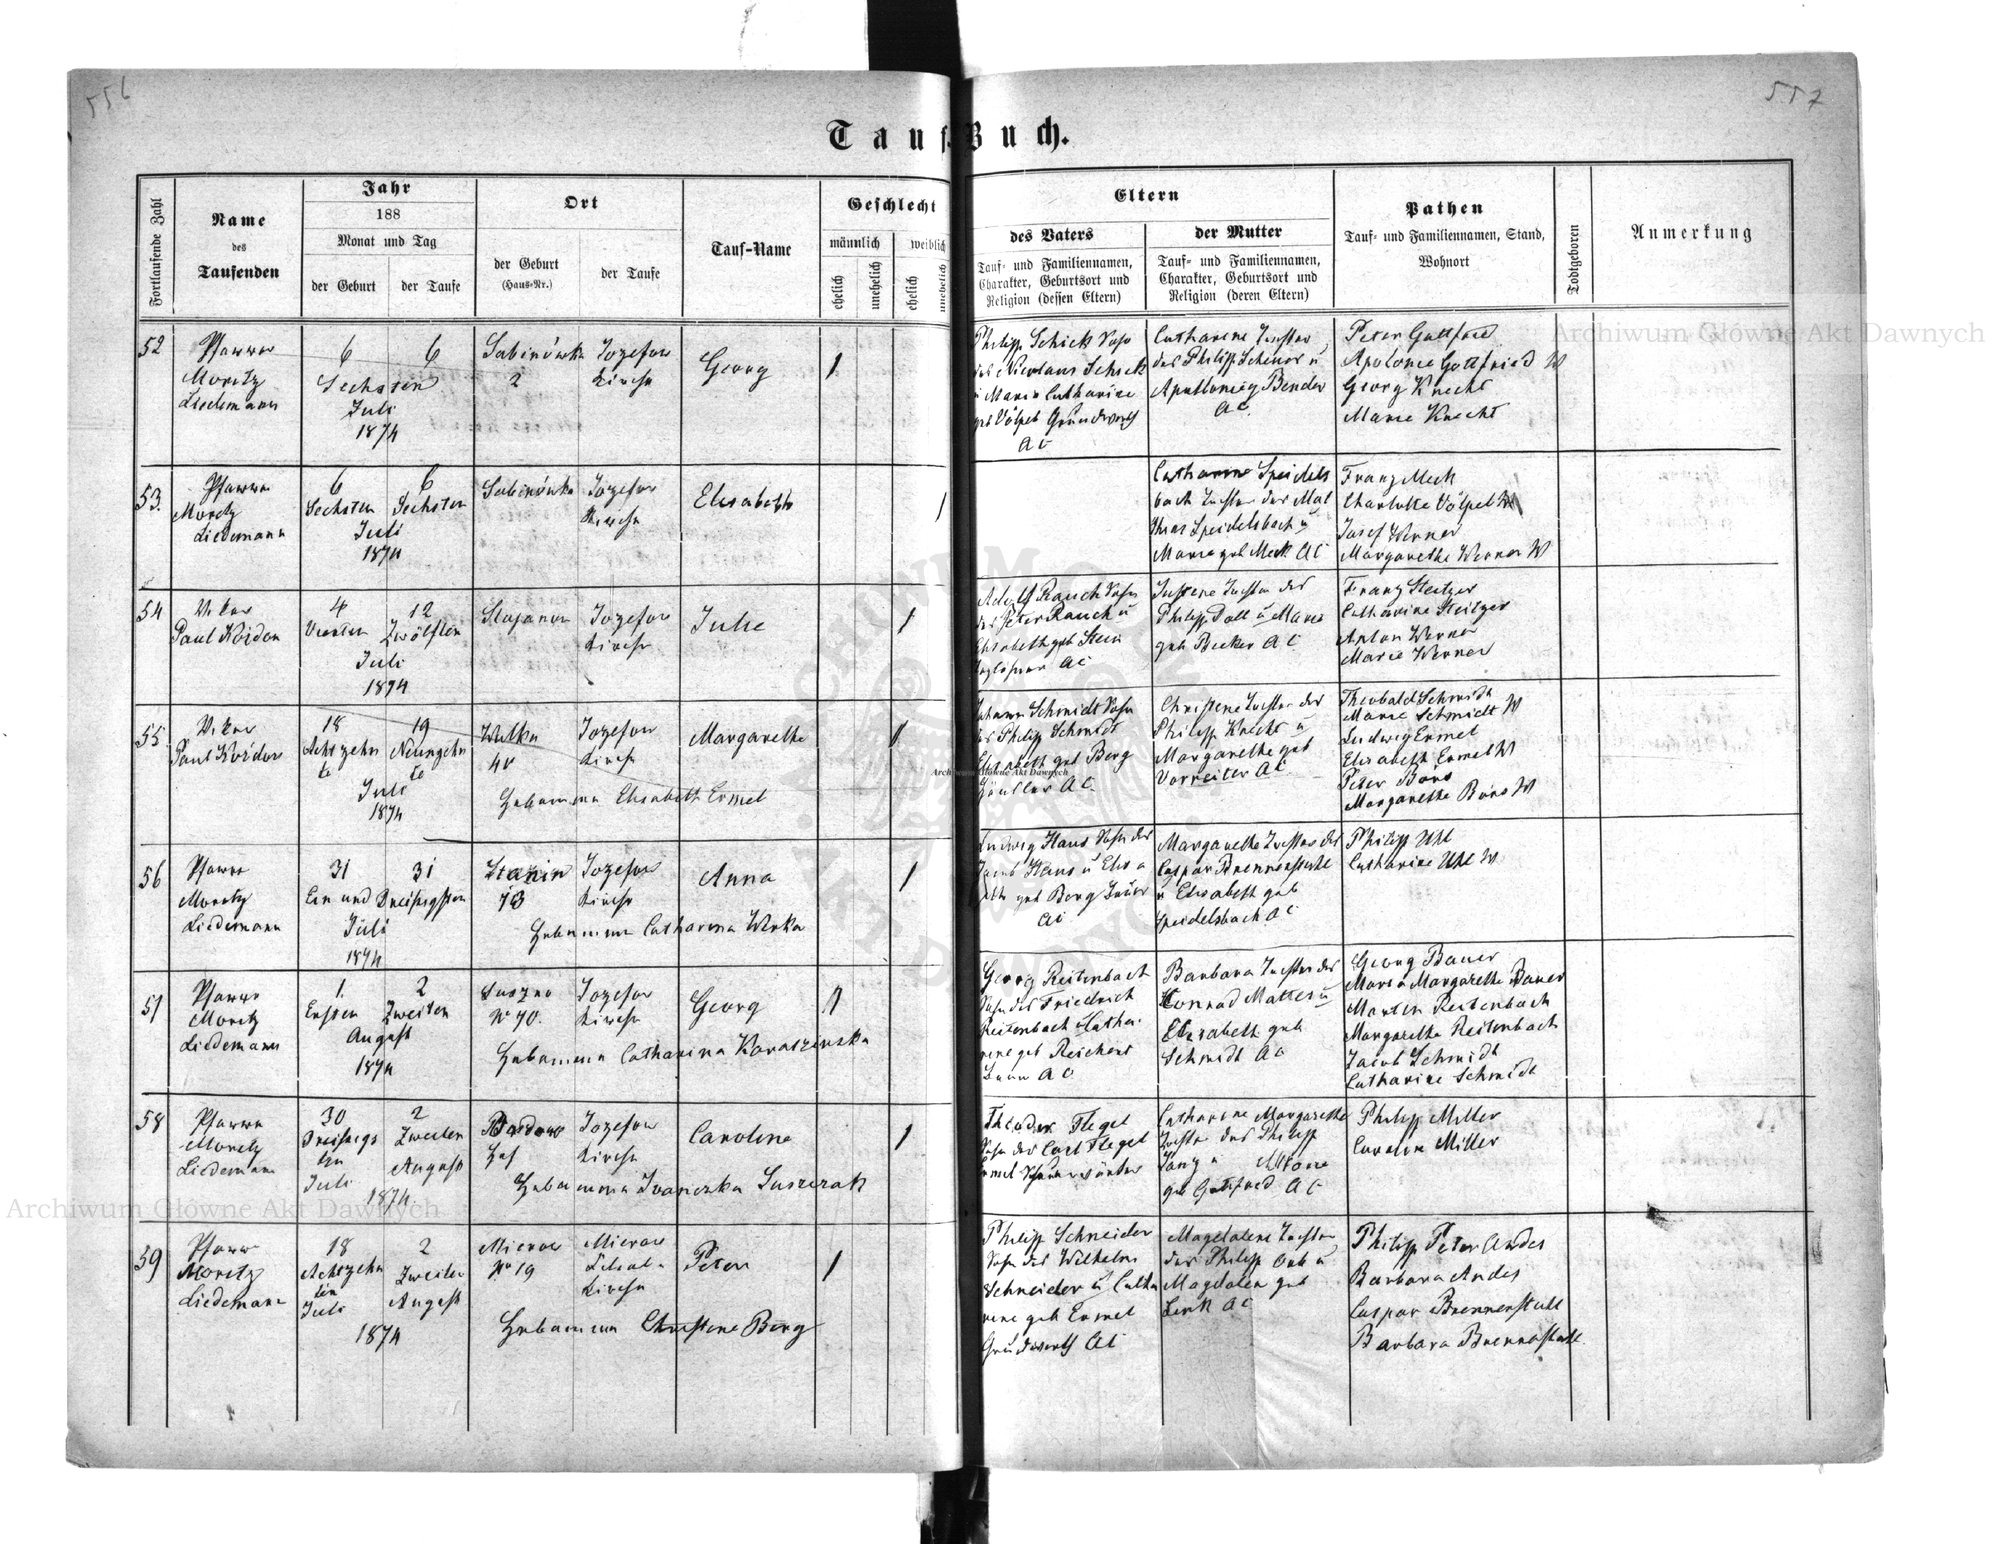 556
557
Tauf-Buch.
Fortlaufende Zahl
Name
des
Taufenden
Jahr
188
Monat und Tag
der Geburt
der Taufe
Ort
der Geburt
(Haus-Nr.)
der Taufe
Tauf-Name
Geschlecht
männlich
weiblich
ehelich
unehelich
ehelich
unehelich
Eltern
des Vaters
Tauf- und Familiennamen,
Charakter, Geburtsort und
Religion (dessen Eltern)
der Mutter
Tauf- und Familiennamen,
Charakter, Geburtsort und
Religion (deren Eltern)
Pathen
Tauf- und Familiennamen, Stand,
Wohnort
Todtgeboren
Anmerkung
52
Pfarrer
Moritz
Liedemann
6 6
Sechsten
Juli
1874
Sabinówka
2
Jozefow
Kirche
Georg
1
Philipp Schick Sohn
des Nicolaus Schick
u Maria Catharine
geb Völpel Grundwirth
AC
Catharine Tochter
des Philipp Schenor u
Apollonia Bender
AC
Peter Gottfried
Apolonie Gottfried W
Georg Knecht
Marie Knecht
53.
Pfarrer
Moritz
Liedemann
6 6
Sechsten Sechsten
Juli
1874
Sabinówka
Jozefow
Kirche
Elisabeth
1
Catharine Speidels
bach Tochter des Mat
thias Speidelsbach u
Marie geb Meck AC
Franz Meck
Charlotte Völpel W
Josef Werner
Margarethe Werner W
54
Vikar
Paul Kordon
4 12
Vierten Zwölften
Juli
1874
Stojanow
Jozefow
Kirche
Julie
1
Adolf Rauch Sohn
des Peter Rauch u
Elisabeth geb Stein
AC
Tochter des
Philipp Doll u Marie
geb Becker AC
Franz Steitzer
Catharine Steitzer
Anton Werner
Marie Werner
55
Vikar
Paul Kordon
18 19
Achtzehn Neunzehn
te te
Juli
1874
Wolka
Jozefow
Kirche
Margarethe
1
Hebamme Elisabeth Ermel
Johann Schmidt Sohn
des Philipp Schmidt
Elisabeth geb Berg
AC
Christine Tochter des
Philipp Knecht u
Margarethe geb
Vorreiter AC
Theobald Schmidt
Marie Schmidt W
Ludwig Ermel
Elisabeth Ermel W
Peter Börs
Margarethe Börs W
56
Pfarrer
Moritz
Liedemann
31 31
Ein und Dreißigsten
Juli
1874
Stanin
Jozefow
Kirche
Anna
1
Hebamme Catharina
Ludwig Haus Sohn des
Jacob Haus u Elisa
beth geb Berg
AC
Margarethe Tochter des
Caspar Brennenstuhl
u Elisabeth geb
Speidelsbach AC
Philipp Uhl
Catharine Uhl W
57
Pfarrer
Moritz
Liedemann
1. 2
Ersten Zweiten
August
1874
Suszno
No 70.
Jozefow
Kirche
Georg
1
Hebamme Catharina
Georg Reitenbach
Sohn des Friedrich
Reitenbach u Catha
rine geb Reichert
AC
Barbara Tochter des
Konrad Mattes u
Elisabeth geb
Schmidt AC
Georg Bauer
Maria Margarethe Bauer
Martin Reitenbach
Margarethe Reitenbach
Jacob Schmidt
Catharine Schmidt
58
Pfarrer
Moritz
Liedemann
30 2
Dreißigs Zweiten
ten
Juli August
1874
Hof
Jozefow
Kirche
Caroline
1
Hebamme
Theodor Flegel
Sohn des Carl Flegel
Catharine Margarethe
Tochter des Philipp
geb Gottfried AC
Philipp Miller
Caroline Miller
59
Pfarrer
Moritz
Liedemann
18 2
Achtzehn Zweiten
ten
Juli August
1874
Mierow
No 19
Mierow
Filial
Kirche
Peter
1
Hebamme Christine Berg
Philipp Schneider
Sohn des Wilhelm
Schneider u Catha
rine geb Ermel
Grundwirth AC
Magdalene Tochter
des Philipp u
Magdalen geb
Lenk AC
Philipp Peter Andes
Barbara Andes
Caspar Brennenstuhl
Barbara Brennenstuhl
Archiwum Główne Akt Dawnych
Archiwum Główne Akt Dawnych
Archiwum Główne Akt Dawnych
ARCHIWUM GŁÓWNE AKT DAWNYCH